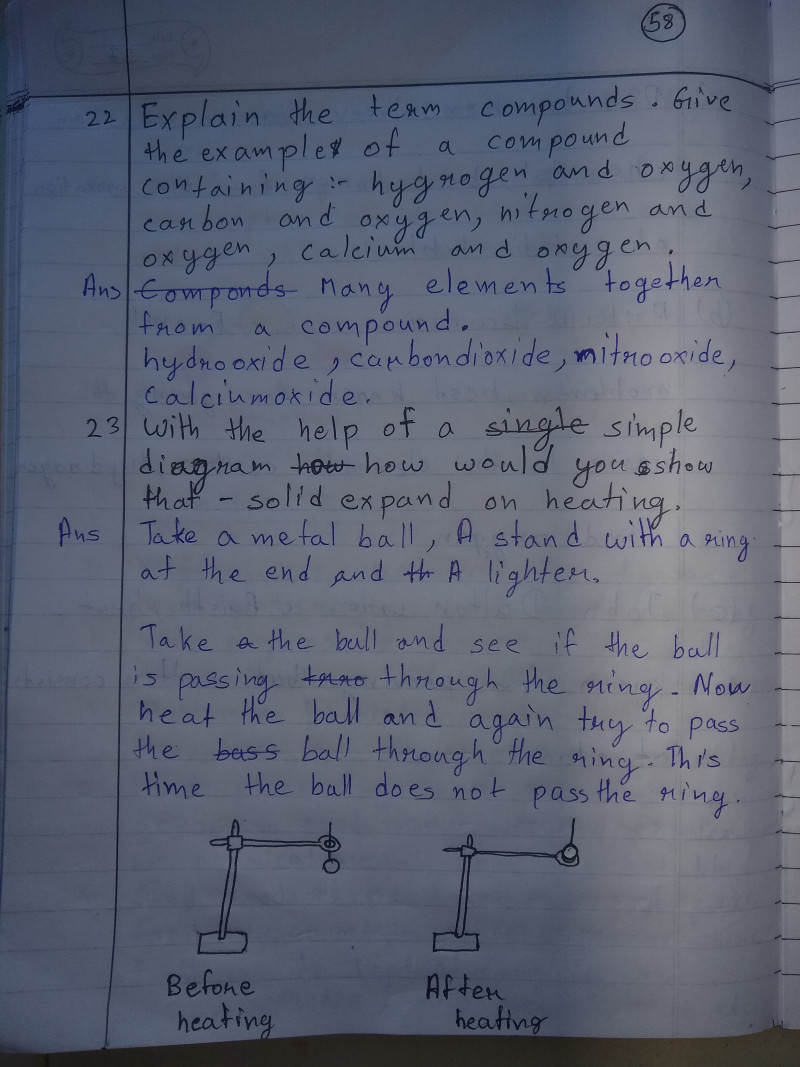 58
22 Explain the term compounds. Give
the example of a compound
containing :- hygrogen and oxygen,
carbon and oxygen, nitrogen and
oxygen, calcium and oxygen.
Ans Componds Many elements together
from a compound.
hydrooxide, carbondioxide, nitrooxide,
calciumoxide.
23 With the help of a single simple
diagram how how would you show
that - solid expand on heating.
Ans Take a metal ball, A stand with a ring
at the end and th A lighter.
Take a the ball and see if the ball
is passing thro through the ring. Now
heat the ball and again try to pass
the bass ball through the ring. This
time the ball does not pass the ring.
Before After
heating heating